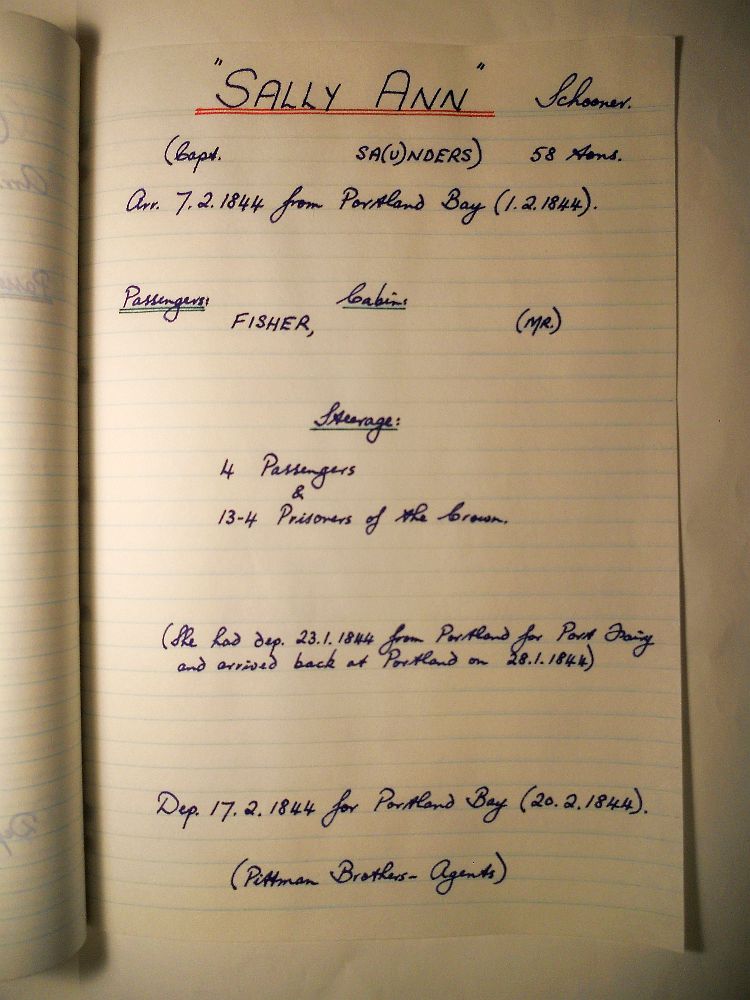 "SALLY ANN" Schooner.
(Capt. SA(U)NDERS) 58 tons.
Arr. 7.2.1844 from Portland Bay (1.2.1844).
Passengers: Cabin:
FISHER, (MR.)
Steerage:
4 Passengers
&
13-4 Prisoners of the Crown.
(She had dep. 23.1.1844 from Portland for Port Fairy
and arrived back at Portland on 28.1.1844)
Dep. 17.2.1844 for Portland Bay (20.2.1844).
(Pittman Brothers- Agents)